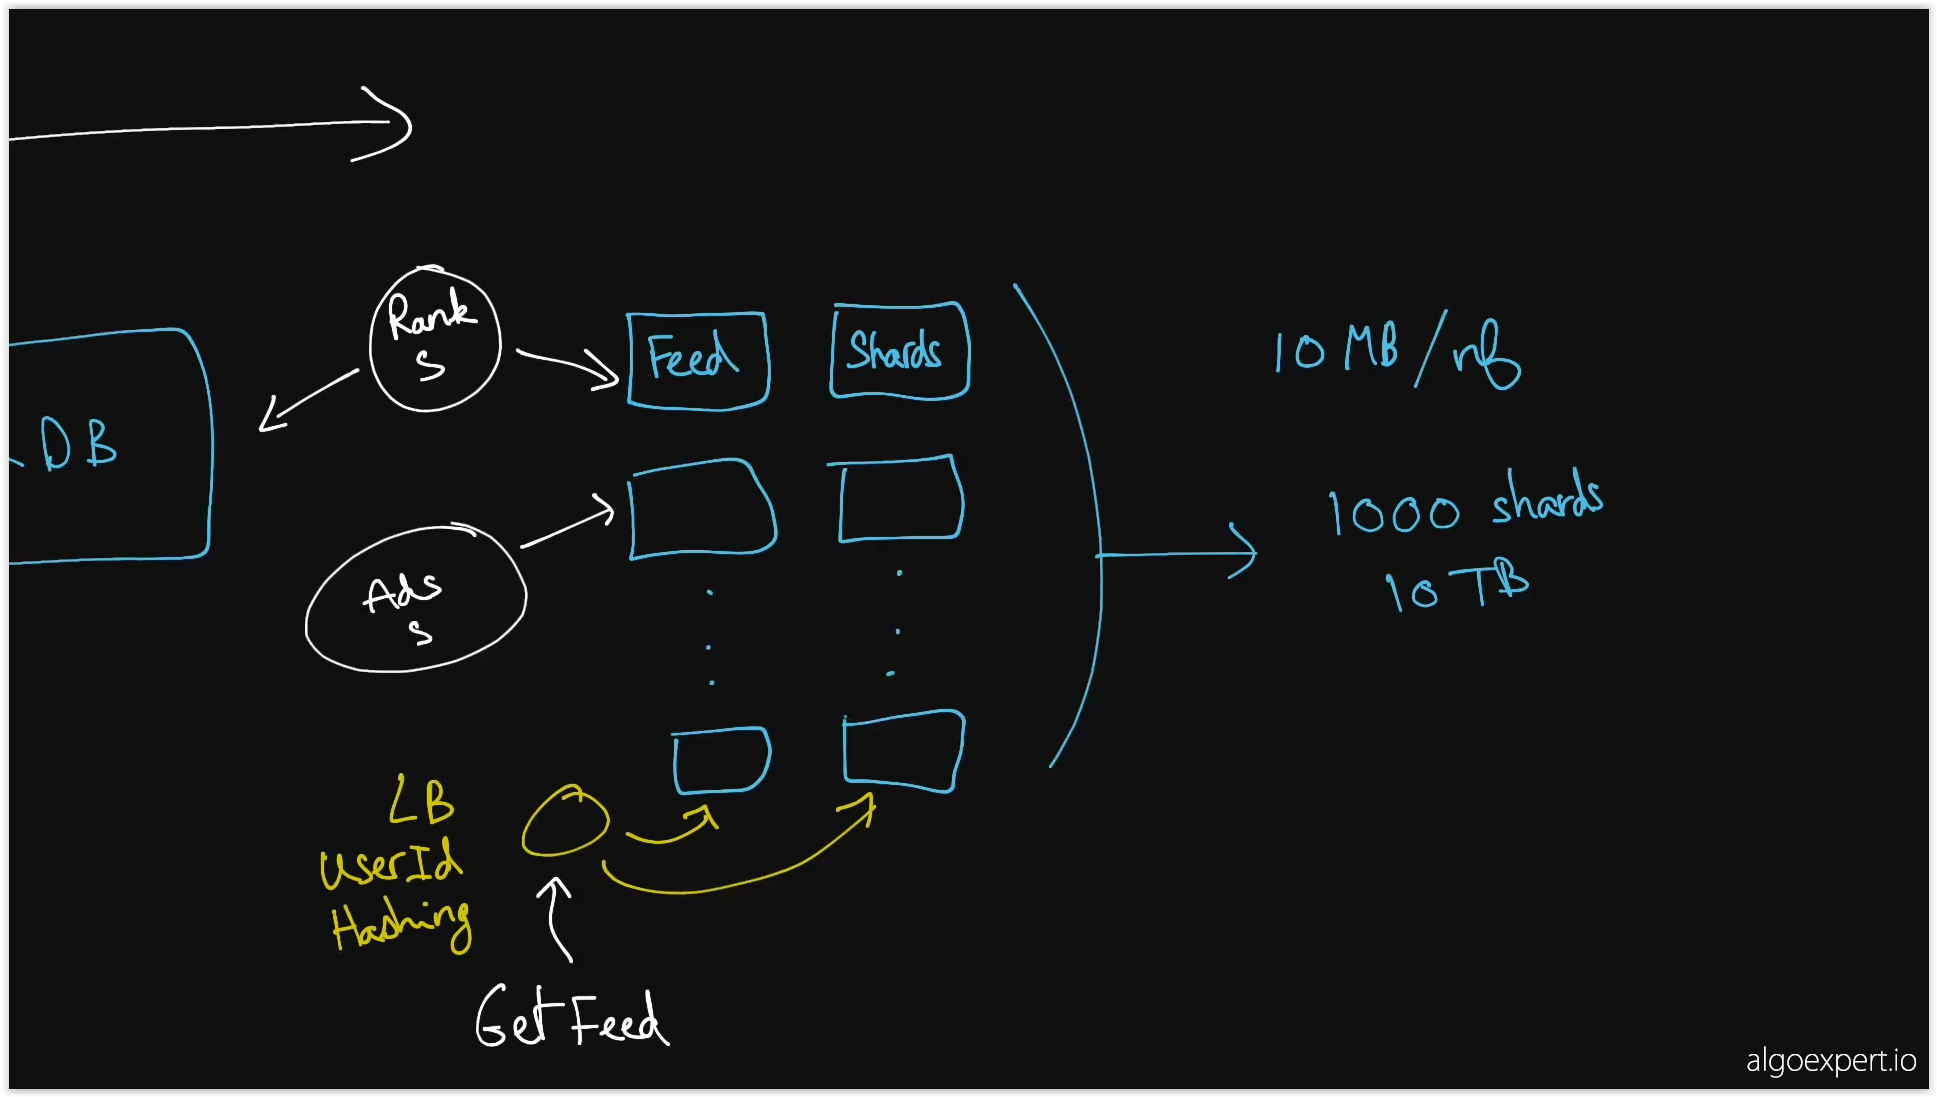 Rank
S
Feed
Shards
10 MB/nf
DB
1000 shards
10 TB
Ads
S
LB
UserId
Hashing
GetFeed
algoexpert.io